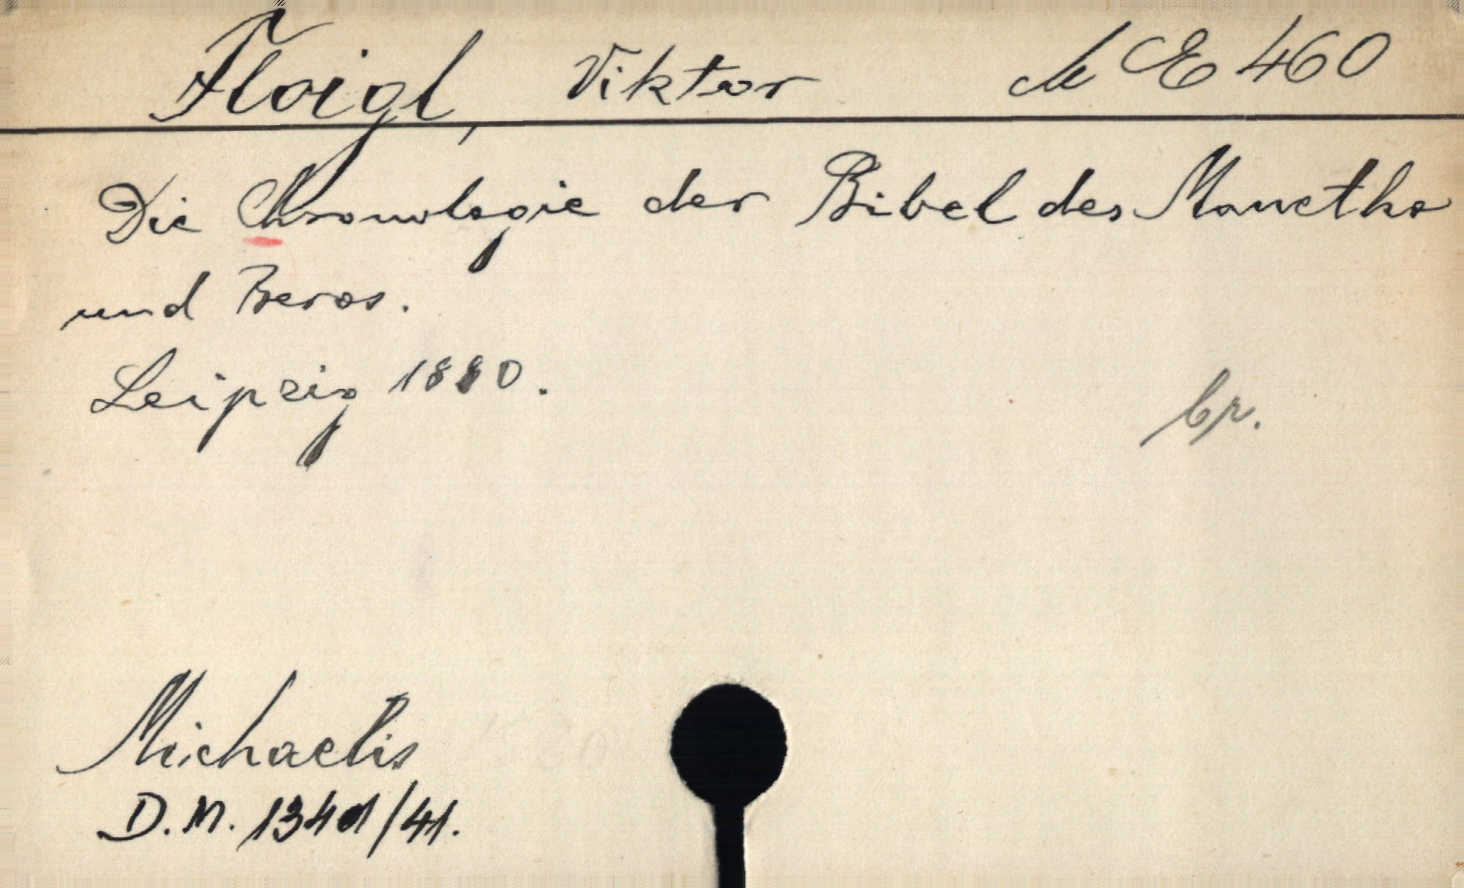 Floigl, Viktor M E 460
Die Chronologie der Bibel des Manetho
und Beros.
Leipzig 1880.
br.
Michaelis
D. M. 1341/41.